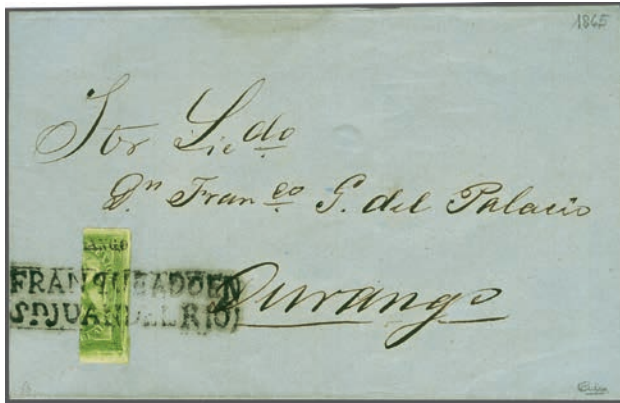 1865
Sor Licdo
Dn Franco G. del Palacio
ANGO
FRANQUEADO EN
Sn JUAN DEL RIO
Durango